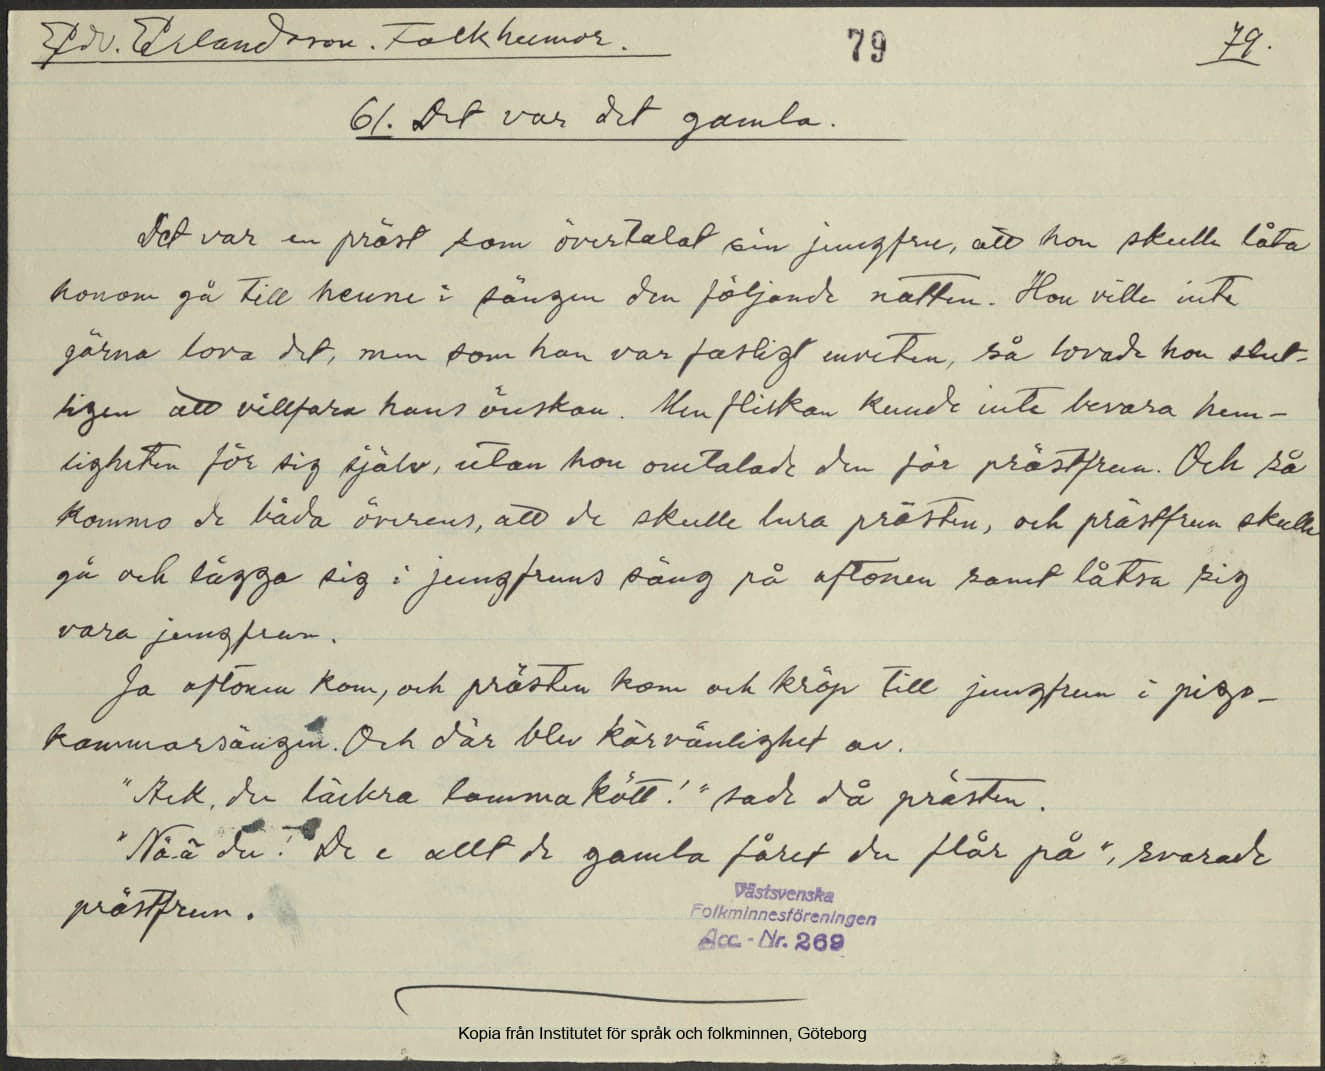 Edv. Erlandsson. Folkhumor.
79
79.
61. Det var det gamla.
Det var en präst som övertalat sin jungfru, att hon skulle låta
honom gå till henne i sängen den följande natten. Hon ville inte
gärna lova det, men som han var fasligt enveten, så lovade hon slut-
ligen att villfara hans önskan. Men flickan kunde inte bevara hem-
ligheten för sig själv, utan hon omtalade den för prästfrun. Och så
kommo de båda överens, att de skulle lura prästen, och prästfrun skulle
gå och lägga sig i jungfruns säng på aftonen samt låtsa sig
vara jungfrun.
Ja aftonen kom, och prästen kom och kröp till jungfrun i pige-
kammarsängen. Och där blev kärvänlighet av.
"Ack, du läckra lammakött!" sade då prästen.
"Nää du! De e allt de gamla fåret du flår på", svarade
prästfrun.
Västsvenska
Folkminnesföreningen
Acc. - Nr. 269
Kopia från Institutet för språk och folkminnen, Göteborg